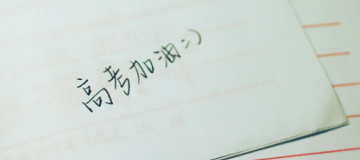 高考加油:)